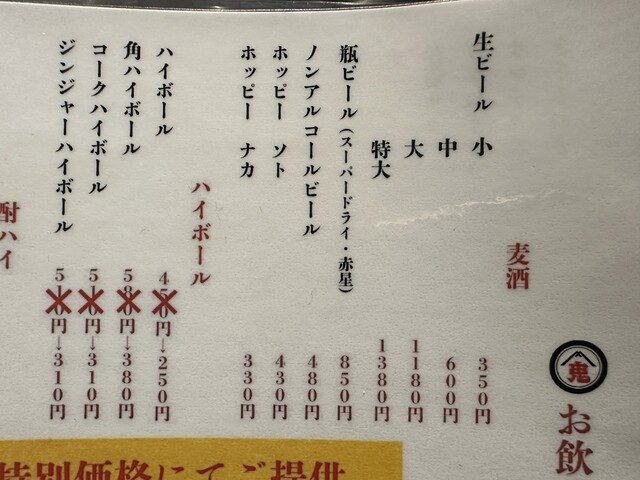 鬼
お飲
麦酒
生ビール 小 350円
中 600円
大 1180円
特大 1380円
瓶ビール(スーパードライ・赤星) 850円
ノンアルコールビール 480円
ホッピー ソト 430円
ホッピー ナカ 330円
ハイボール
ハイボール 450円→250円
角ハイボール 580円→380円
コークハイボール 510円→310円
ジンジャーハイボール 510円→310円
酎ハイ
特別価格にてご提供